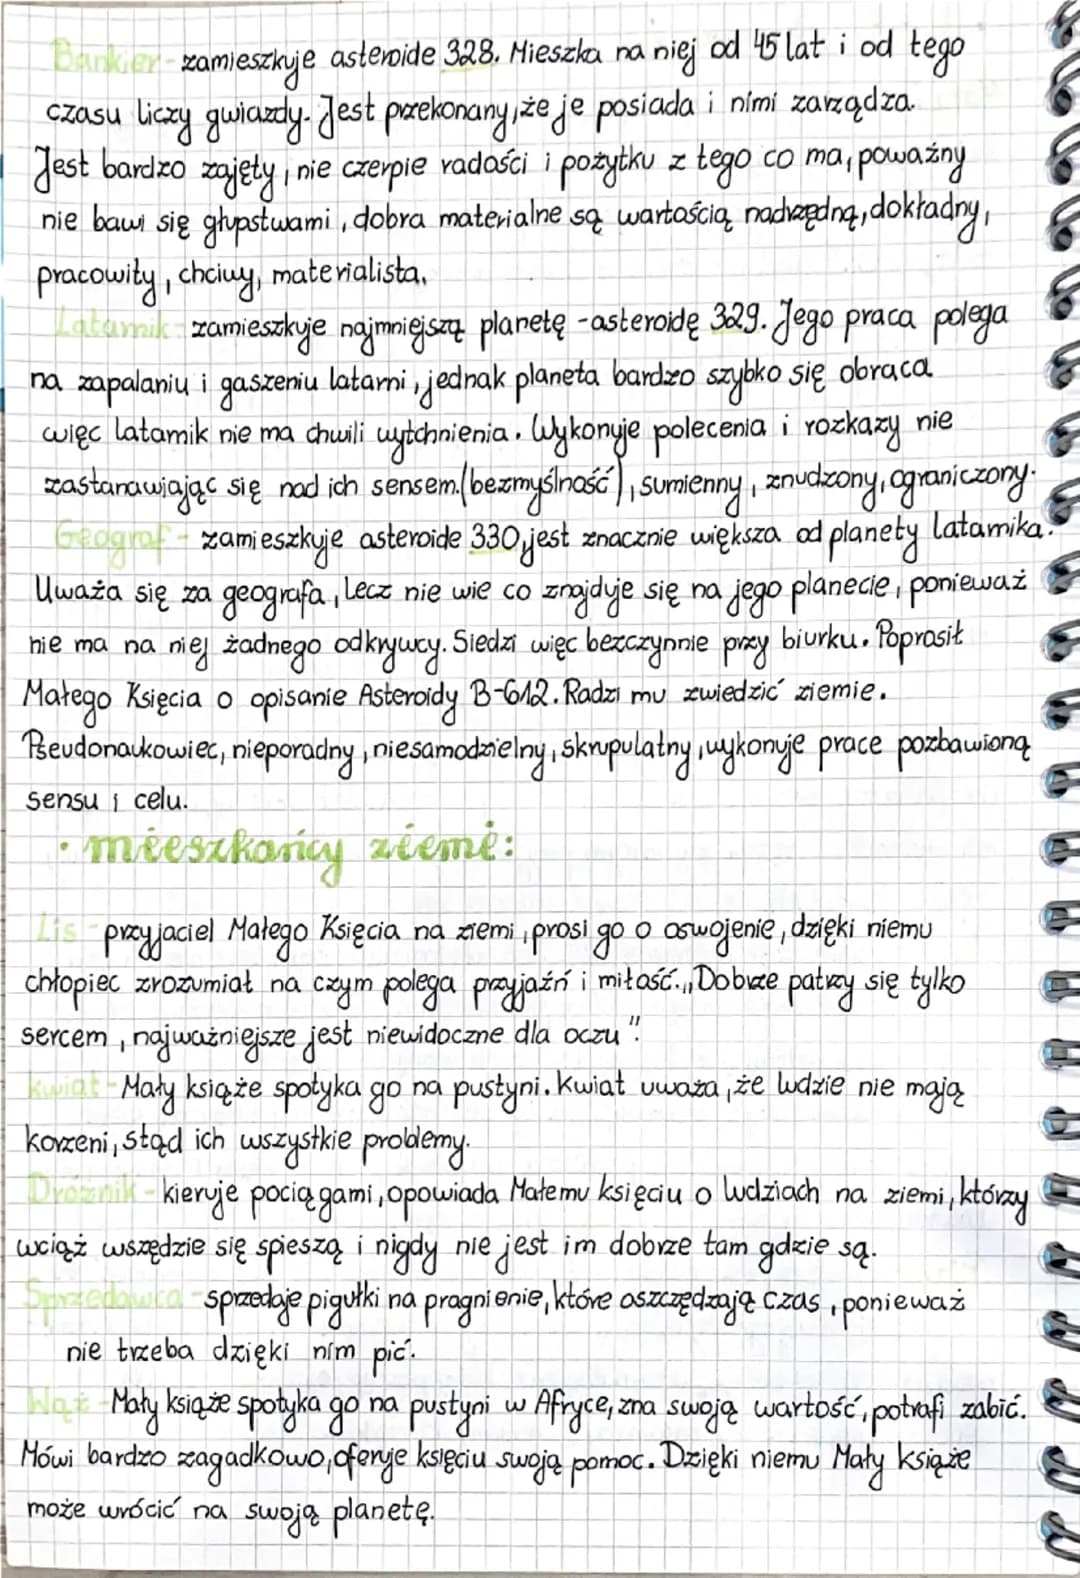 Bankier - zamieszkuje asteroide 328. Mieszka na niej od 45 lat i od tego
czasu liczy gwiazdy. Jest przekonany, że je posiada i nimi zarządza.
Jest bardzo zajęty, nie czerpie radości i pożytku z tego co ma, poważny
nie bawi się głupstwami, dobra materialne są wartością nadrzędną, dokładny,
pracowity, chciwy, materialista.
Latarnik - zamieszkuje najmniejszą planetę - asteroidę 329. Jego praca polega
na zapalaniu i gaszeniu latarni, jednak planeta bardzo szybko się obraca
więc latarnik nie ma chwili wytchnienia. Wykonuje polecenia i rozkazy nie
zastanawiając się nad ich sensem. (bezmyślność), sumienny, znudzony, ograniczony.
Geograf - zamieszkuje asteroide 330, jest znacznie większa od planety latarnika.
Uważa się za geografa, lecz nie wie co znajduje się na jego planecie, ponieważ
nie ma na niej żadnego odkrywcy. Siedzi więc bezczynnie przy biurku. Poprosił
Małego Księcia o opisanie Asteroidy B-612. Radzi mu zwiedzić ziemie.
Pseudonaukowiec, nieporadny, niesamodzielny, skrupulatny, wykonuje prace pozbawioną
sensu i celu.
• mieszkańcy ziemi:
Lis - przyjaciel Małego Księcia na ziemi, prosi go o oswojenie, dzięki niemu
chłopiec zrozumiał na czym polega przyjaźń i miłość. „Dobrze patrzy się tylko
sercem, najważniejsze jest niewidoczne dla oczu".
Kwiat - Mały książe spotyka go na pustyni. Kwiat uważa, że ludzie nie mają
korzeni, stąd ich wszystkie problemy.
Dróżnik - kieruje pociągami, opowiada Małemu księciu o ludziach na ziemi, którzy
wciąż wszędzie się spieszą i nigdy nie jest im dobrze tam gdzie są.
Sprzedawca - sprzedaje pigułki na pragnienie, które oszczędzają czas, ponieważ
nie trzeba dzięki nim pić.
Wąż - Mały książe spotyka go na pustyni w Afryce, zna swoją wartość, potrafi zabić.
Mówi bardzo zagadkowo, oferuje księciu swoją pomoc. Dzięki niemu Mały książe
może wrócić na swoją planetę.